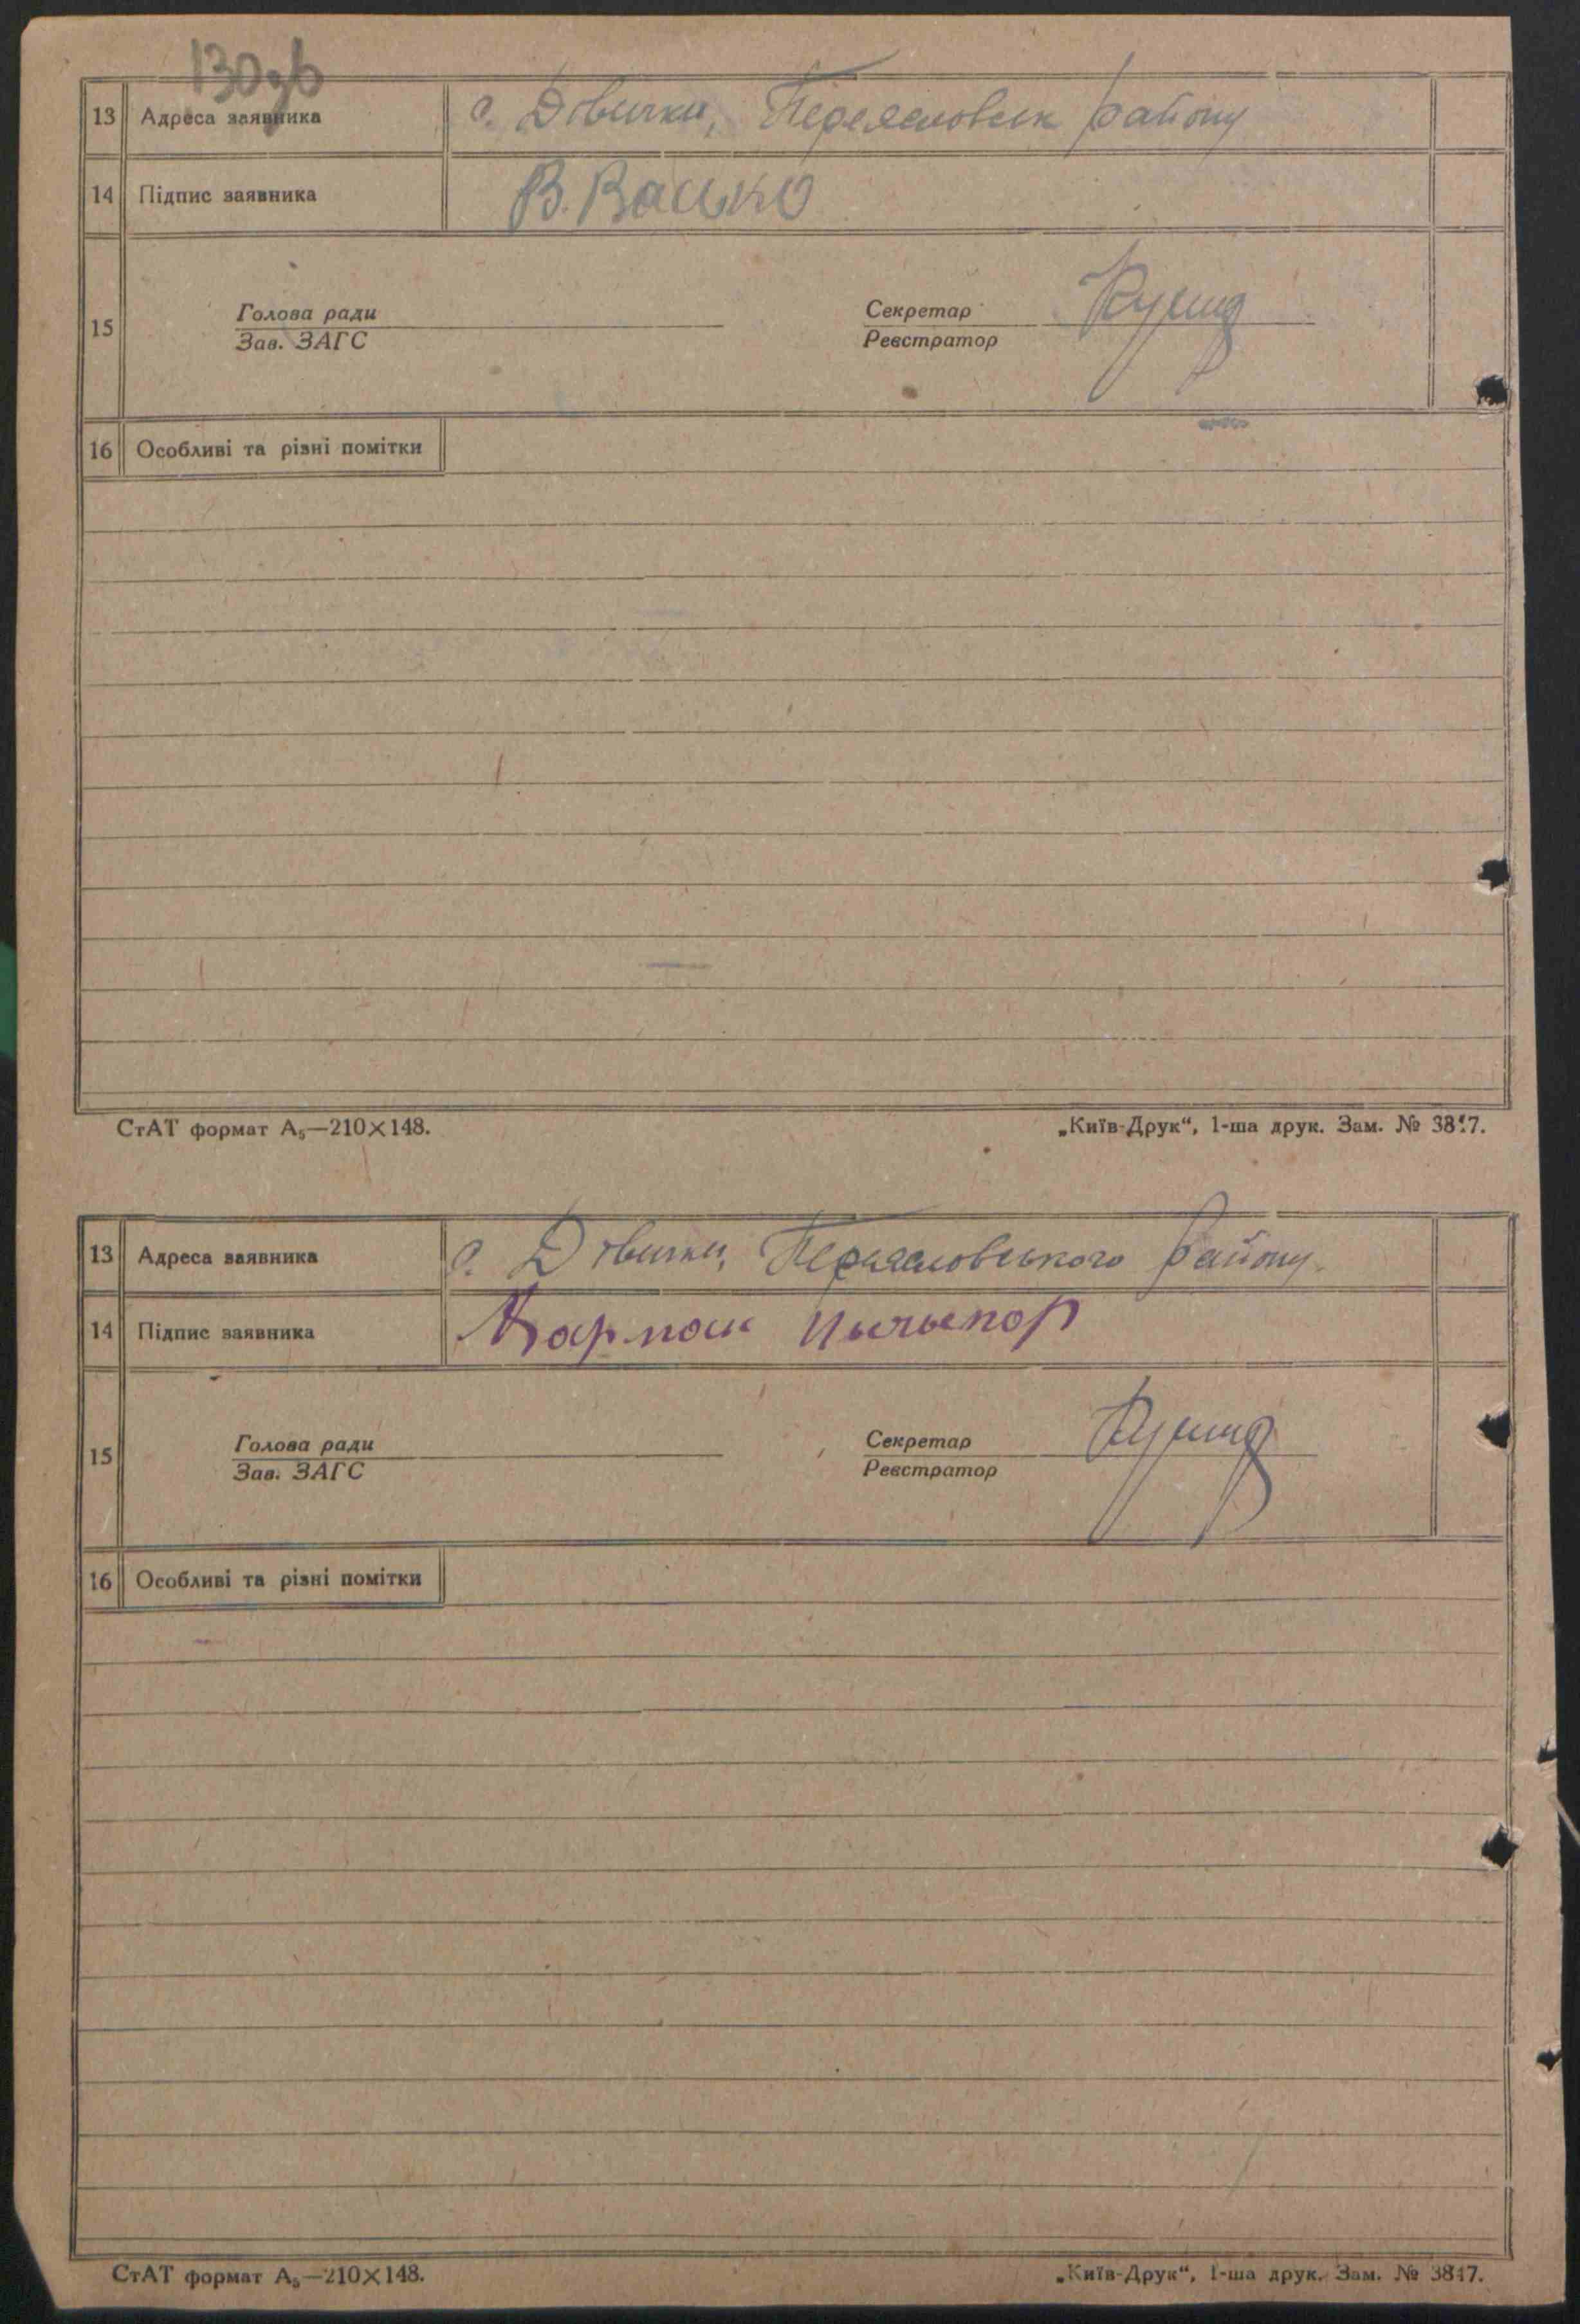 130зв
13 Адреса заявника с. Дівички, Переяславськ району
14 Підпис заявника В. Вашко
15 Голова ради
Зав. ЗАГС
Секретар
Реєстратор
16 Особливі та різні помітки
СтАТ формат А₅—210×148. „Київ-Друк“, 1-ша друк. Зам. № 3817.
13 Адреса заявника с. Дівички, Переяславського району.
14 Підпис заявника Кармаш
15 Голова ради
Зав. ЗАГС
Секретар
Реєстратор
16 Особливі та різні помітки
СтАТ формат А₅—210×148. „Київ-Друк“, 1-ша друк. Зам. № 3817.